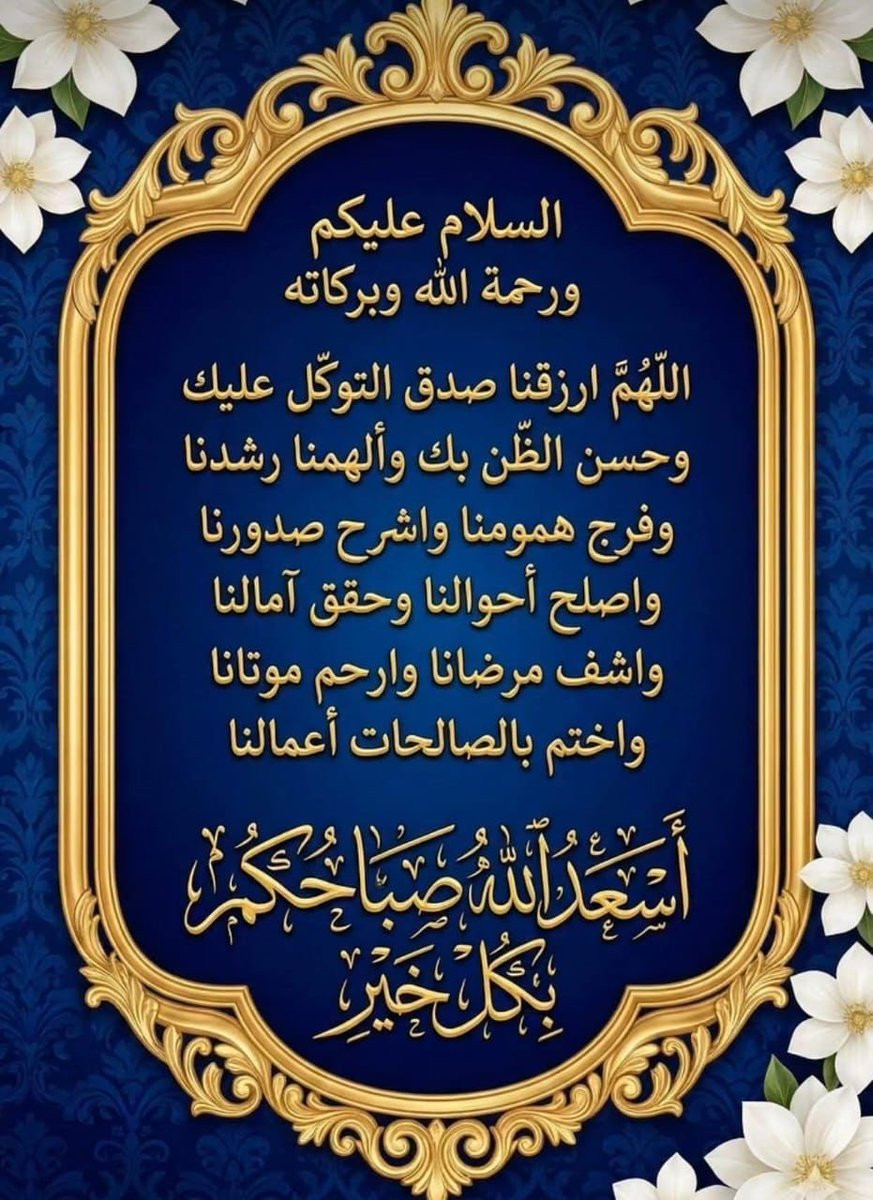 السلام عليكم
ورحمة الله وبركاته
اللّهُمَّ ارزقنا صدق التوكّل عليك
وحسن الظّن بك وألهمنا رشدنا
وفرج همومنا واشرح صدورنا
واصلح أحوالنا وحقق آمالنا
واشف مرضانا وارحم موتانا
واختم بالصالحات أعمالنا
أَسْعَدُ اللهُ صَبَاحُكُمُ
بِكُلْ خَيْرِ